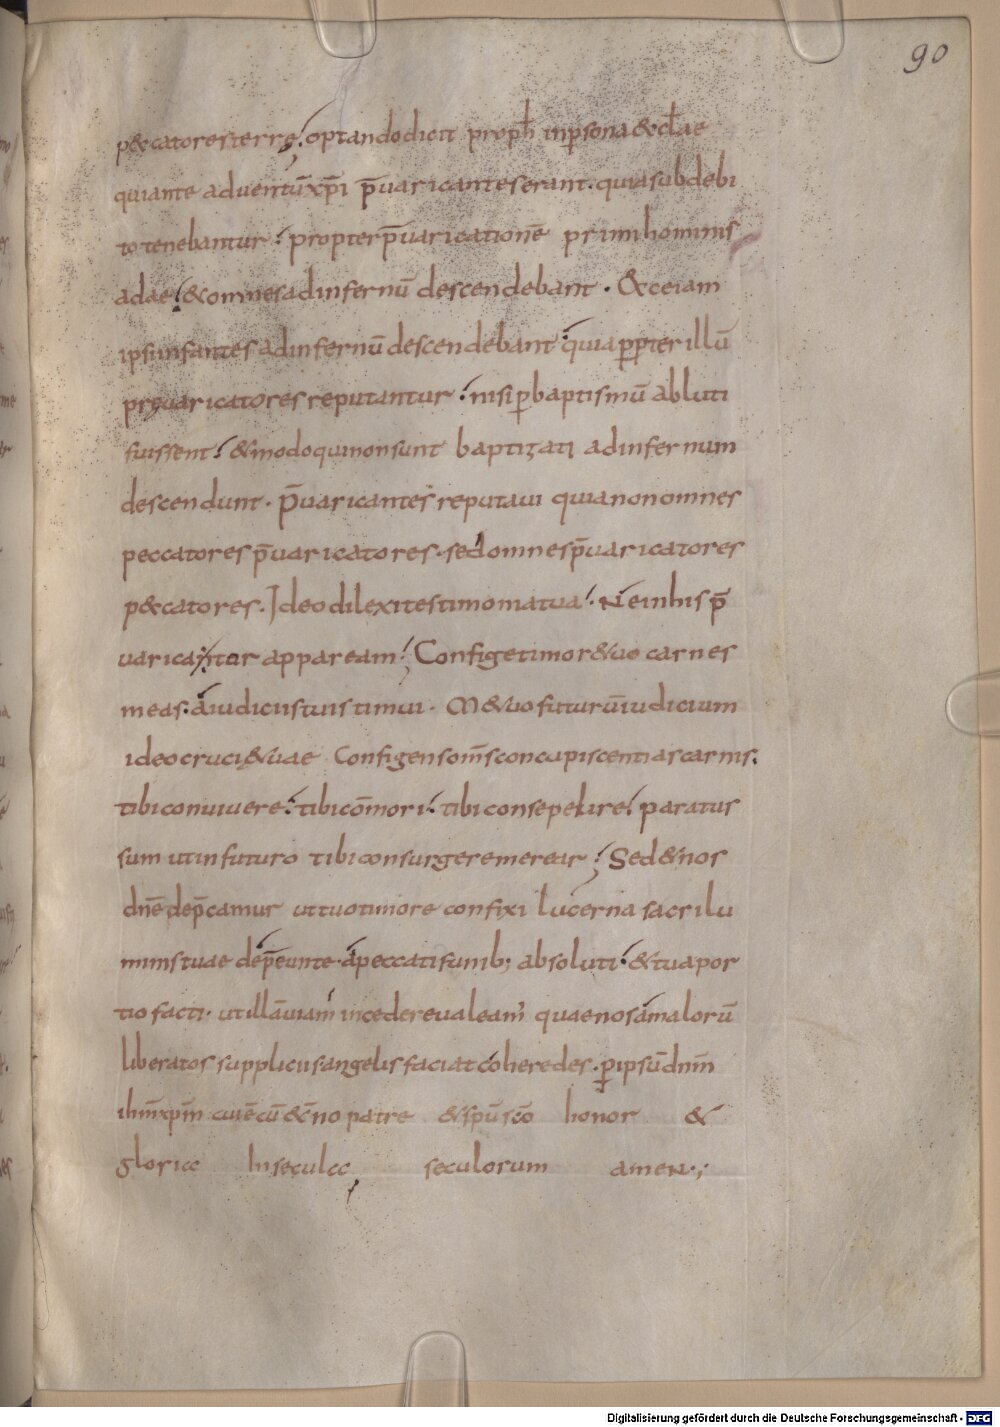 90
p&catores terrę. optando dicit proph̄ in ꝑsona & ecłae
qui ante aduentū xp̄i p̄uaricantes erant. quia sub debi
to tenebantur. propter p̄uaricationē primi hominis
adae. & omnes ad infernū descendebant. & etiam
ipsi infantes ad infernū descendebant. quia ꝓpter illū
pręuaricatores reputantur. nisi ꝑ baptismū abluti
fuissent. & modo qui non sunt baptizati ad infernum
descendunt. P̄uaricantes reputaui quia non omnes
peccatores p̄uaricatores. sed omnes p̄uaricatores
p&catores. Ideo dilexi testimonia tua. Ne in his p̄
uaricator appaream. Confige timore tuo carnes
meas. a iudiciis tuis timui. M&uo futurū iudicium
ideo cruci &uae configens om̄s concupiscentias carnis.
tibi conuiuere. tibi cōmori. tibi consepelire. paratus
sum ut in futuro tibi consurgere merear. Sed & nos
dnē dep̄camur ut tuo timore confixi lucerna sacri lu
minis tuae p̄eunte. a peccati funib; absoluti. & tua por
tio facti. ut illā uiam incedere ualeam quae nos a malorū
liberatos suppliciis angelis faciat coheredes. ꝑ ipsū dnm̄
ihm̄ xpm̄ cui ē cū &no patre & spū sc̄o honor &
gloria In secula seculorum amen.;
Digitalisierung gefördert durch die Deutsche Forschungsgemeinschaft - DFG